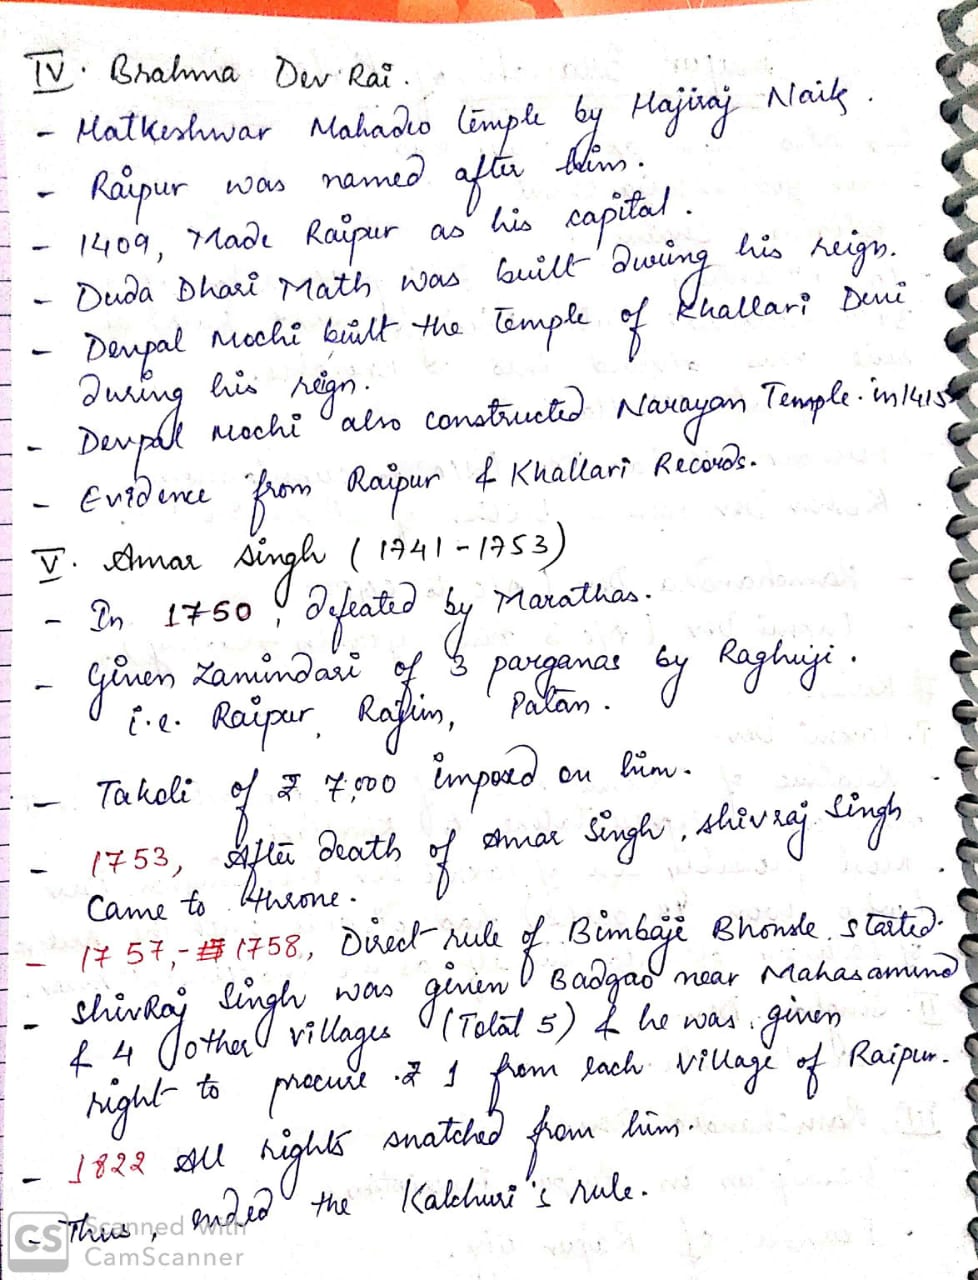 IV. Brahma Dev Rai.
- Hatkeshwar Mahadeo temple by Hajiraj Naik.
- Raipur was named after him.
- 1409, Made Raipur as his capital.
- Duda Dhari Math was built during his reign.
- Devpal Mochi built the temple of Khallari Devi
during his reign.
- Devpal Mochi also constructed Narayan Temple. in 1415
- Evidence from Raipur & Khallari Records.
V. Amar Singh (1741-1753)
- In 1750, defeated by Marathas.
- Given Zamindari of 3 parganas by Raghuji.
i.e. Raipur, Rajim, Patan.
- Takoli of ₹ 7,000 imposed on him.
- 1753, After death of Amar Singh, Shivraj Singh
Came to throne.
- 1757,- 1758, Direct rule of Bimbaji Bhonsle started.
- ShivRaj Singh was given Badgao near Mahasamund
& 4 other villages (Total 5) & he was given
right to procure ₹ 1 from each village of Raipur.
- 1822 All rights snatched from him.
- Thus, ended the Kalchuri's rule.
CS Scanned with
CamScanner